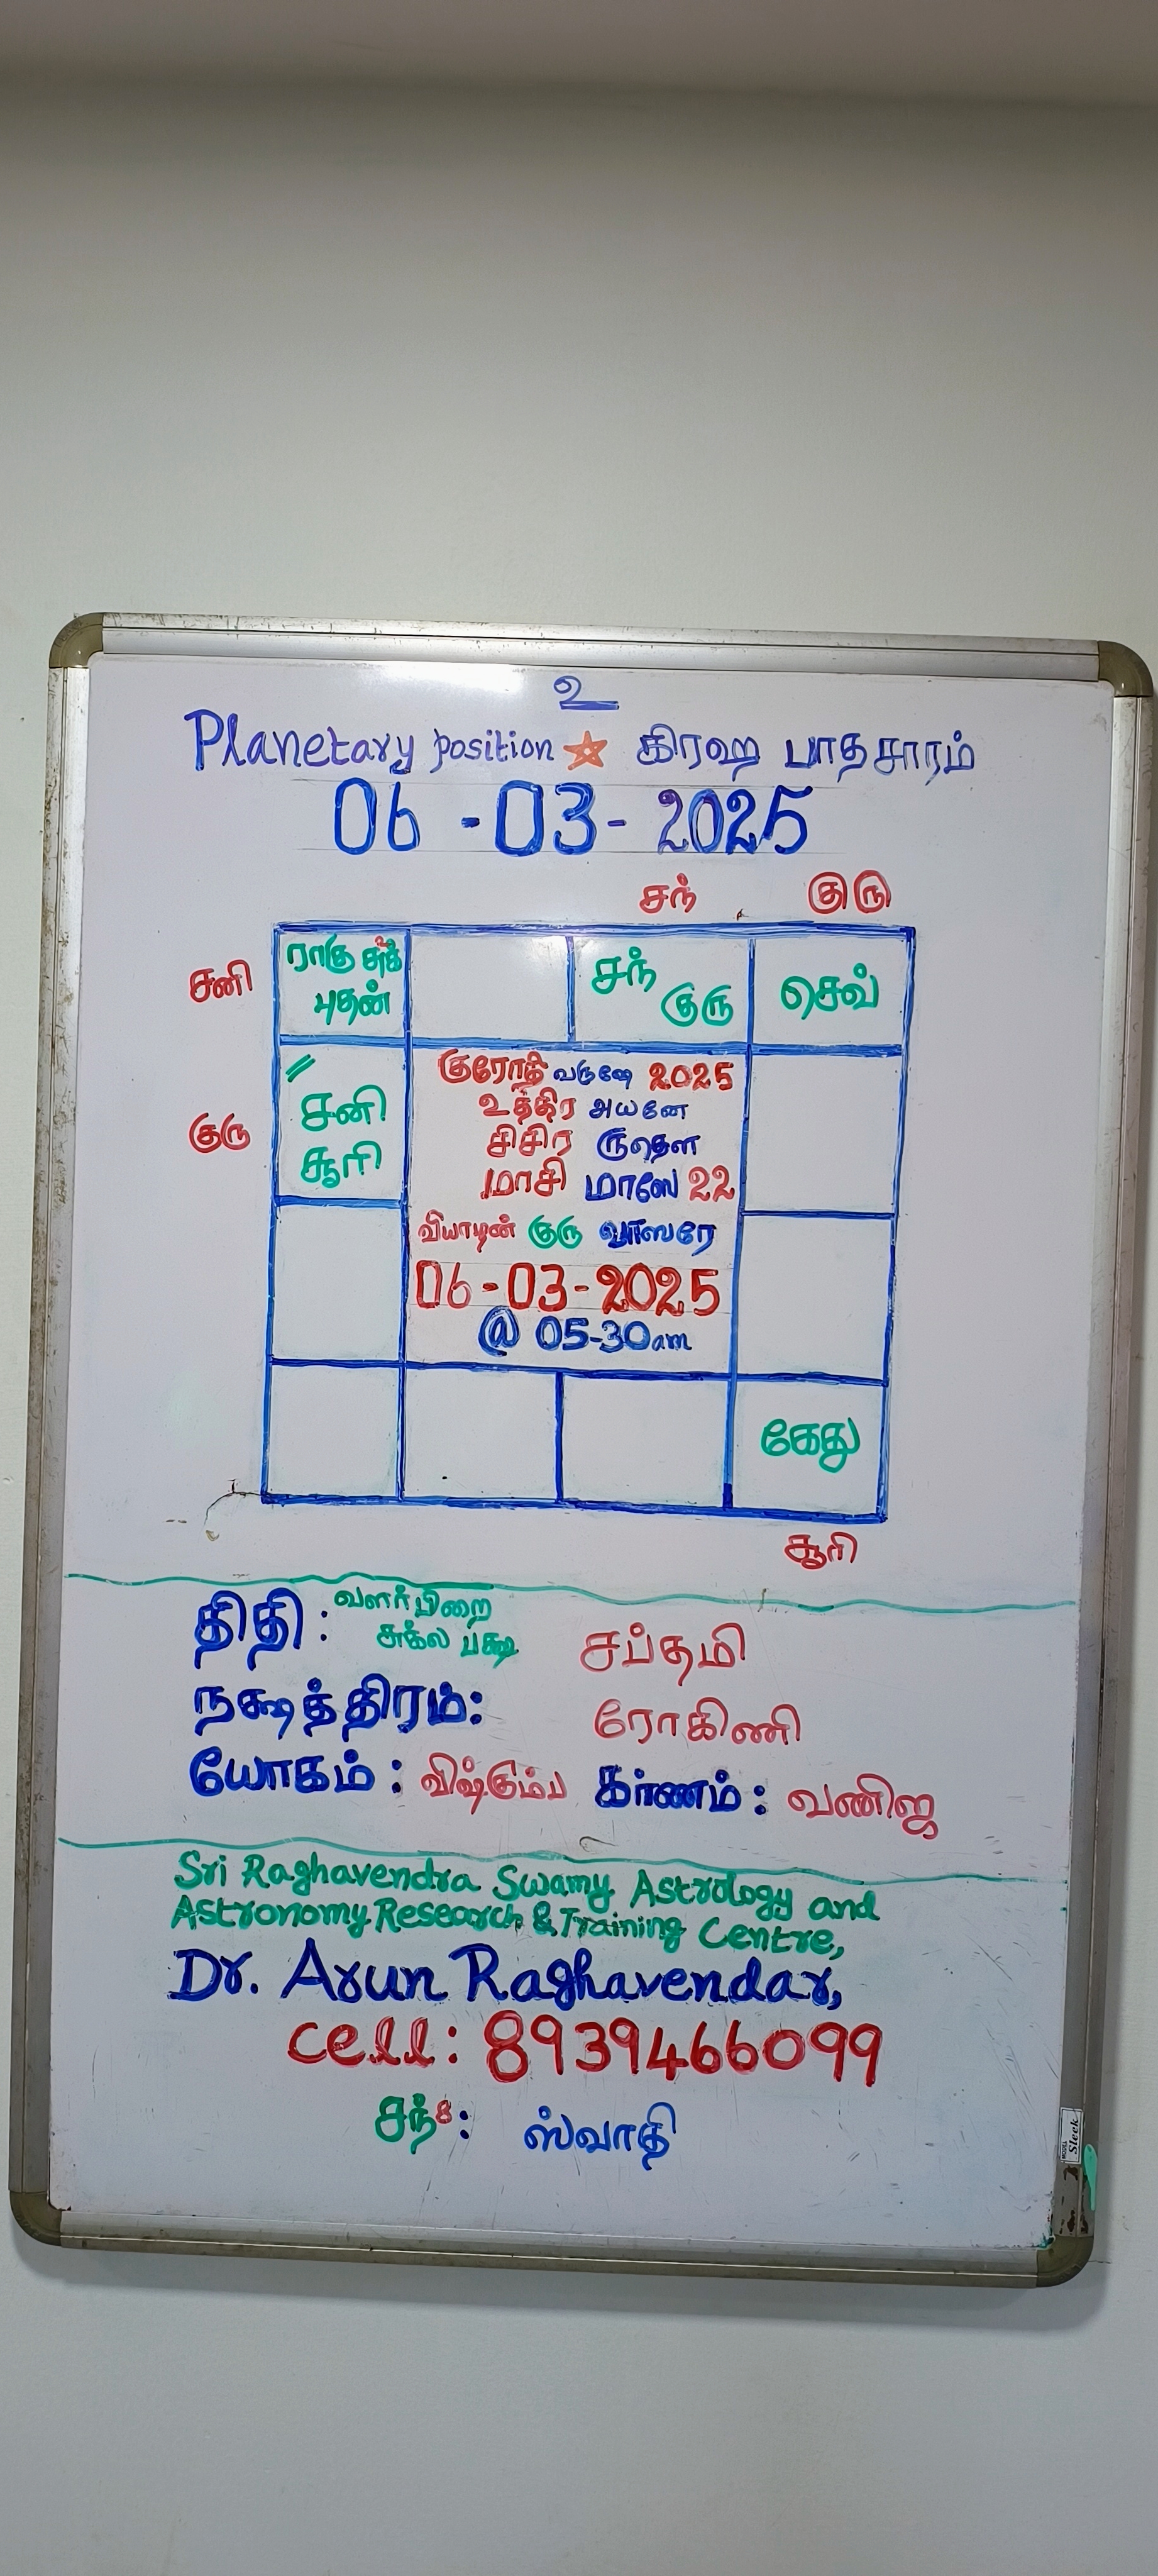 உ
Planetary position கிரஹ பாதசாரம்
06 - 03 - 2025
சந் குரு
ராகு சுக்
புதன்
சனி
சந்
குரு
செவ்
குரு
சனி
சூரி
குரோதி வருஷே 2025
உத்திர அயனே
சிசிர ருதௌ
மாசி மாஸே 22
வியாழன் குரு வாஸரே
06-03-2025
@ 05-30am
கேது
சூரி
திதி : வளர்பிறை
சுக்ல பக்ஷ சப்தமி
நக்ஷத்திரம்: ரோகிணி
யோகம் : விஷ்கும்ப கர்ணம் : வணிஜ
Sri Raghavendra Swamy Astrology and
Astronomy Research & Training Centre,
Dr. Arun Raghavendar,
cell: 8939466099
சந்8: ஸ்வாதி
MODEL
Sleek